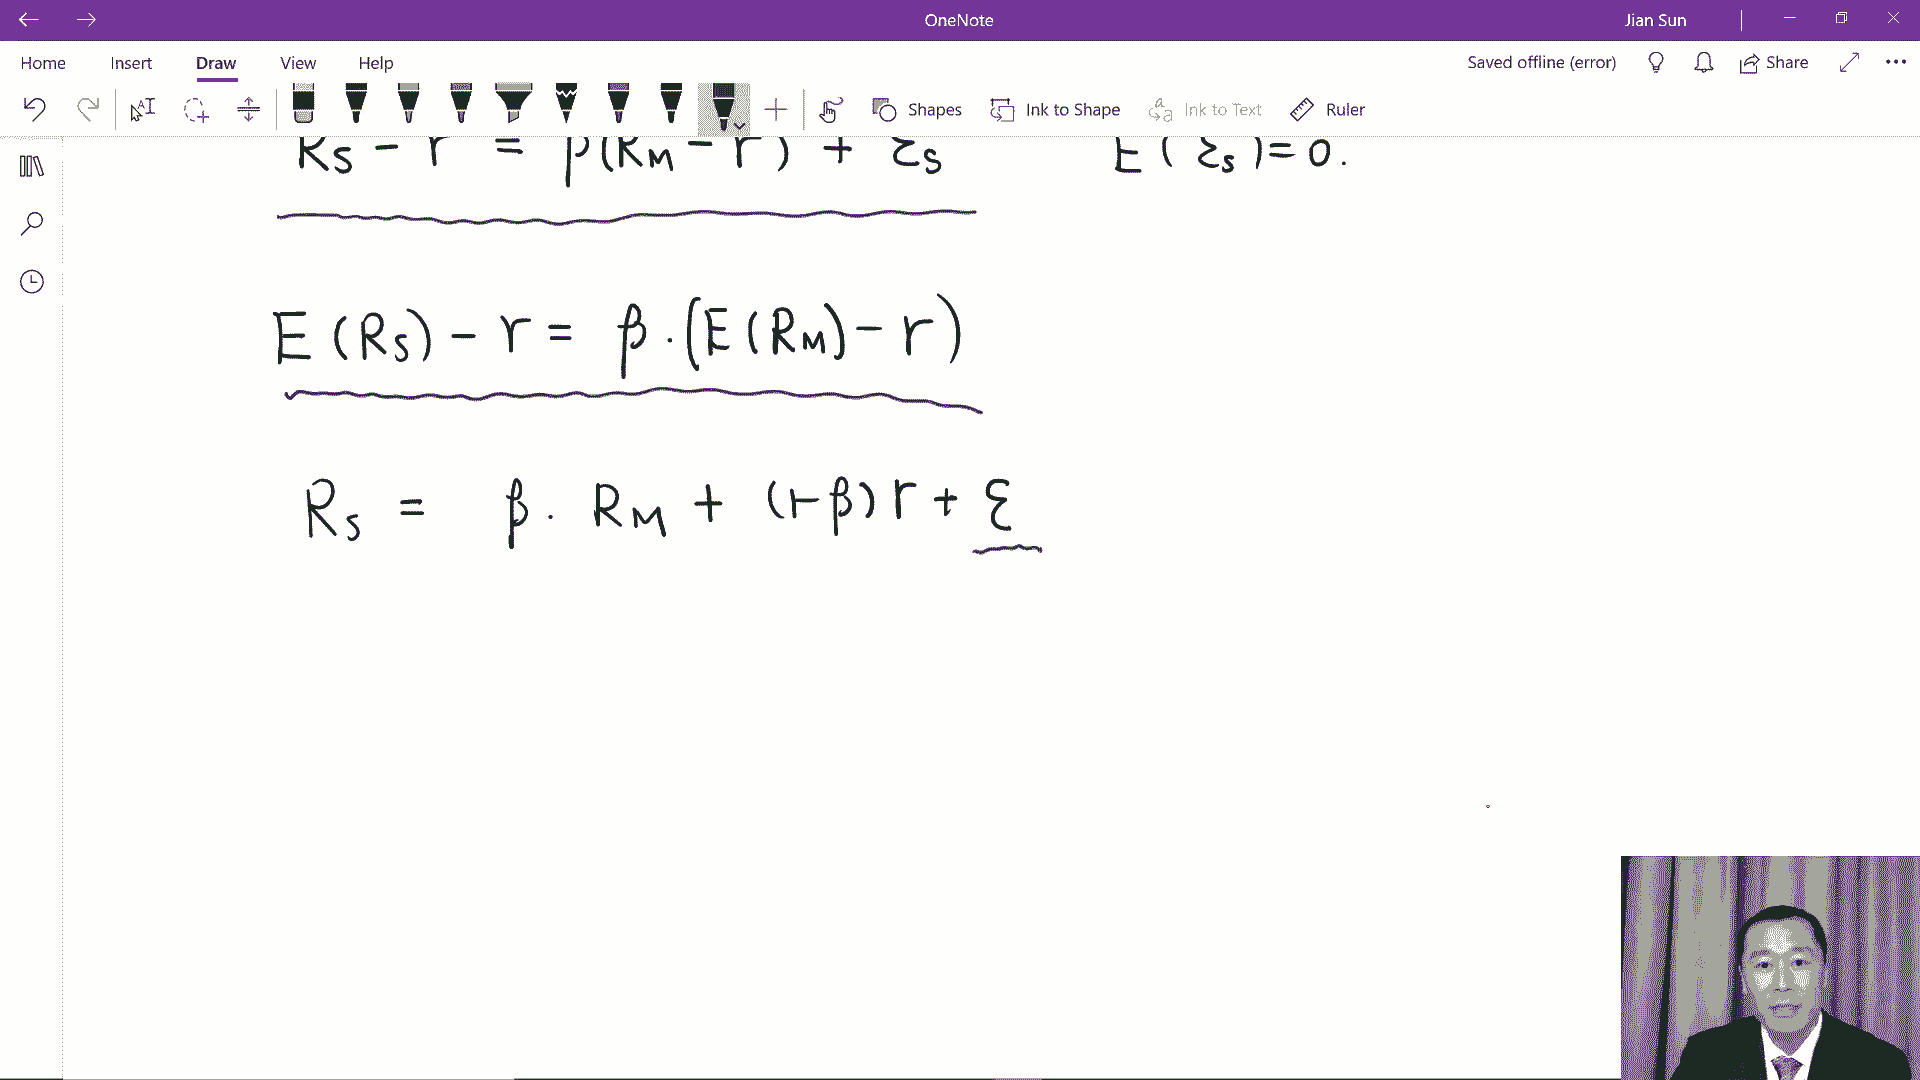 OneNote
Jian Sun
Home Insert Draw View Help
Saved offline (error) Share
Shapes Ink to Shape Ink to Text Ruler
R_S - r = β(R_M - r) + ε_S E(ε_S) = 0.
E(R_S) - r = β·(E(R_M) - r)
R_S = β· R_M + (1-β) r + ε